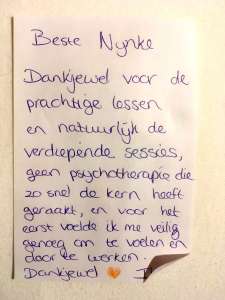 Beste Nynke
Dankjewel voor de
prachtige lessen
en natuurlijk de
verdiepende sessies,
geen psychotherapie die
zo snel de kern heeft
geraakt, en voor het
eerst voelde ik me veilig
genoeg om te voelen en
door te werken.
Dankjewel 🧡